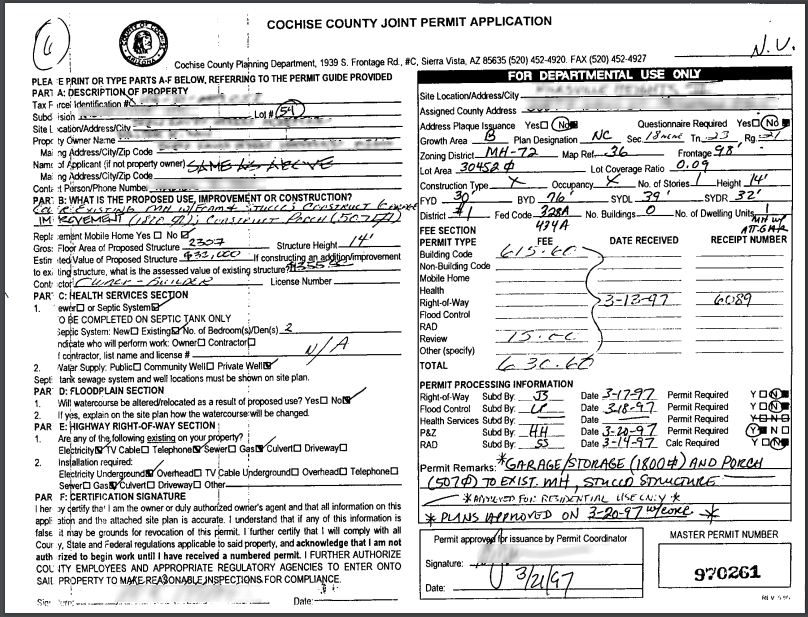 6
COCHISE COUNTY JOINT PERMIT APPLICATION
N.U.
Cochise County Planning Department, 1939 S. Frontage Rd., #C, Sierra Vista, AZ 85635 (520) 452-4920. FAX (520) 452-4927
PLEASE PRINT OR TYPE PARTS A-F BELOW, REFERRING TO THE PERMIT GUIDE PROVIDED
PART A: DESCRIPTION OF PROPERTY
Tax Parcel Identification #
Subdivision Lot # 54
Site Location/Address/City
Property Owner Name
Mailing Address/City/Zip Code
Name of Applicant (if not property owner) SAME AS ABOVE
Mailing Address/City/Zip Code
Contact Person/Phone Number
PART B: WHAT IS THE PROPOSED USE, IMPROVEMENT OR CONSTRUCTION?
EXISTING MH W/FRAME STUCCO CONSTRUCT GARAGE
IMPROVEMENT CONSTRUCT PORCH
Replacement Mobile Home Yes No
Gross Floor Area of Proposed Structure 2307 Structure Height 14'
Estimated Value of Proposed Structure $32,000 If constructing an addition/improvement
to existing structure, what is the assessed value of existing structure?
Contractor OWNER-BUILDER License Number
PART C: HEALTH SERVICES SECTION
1. Sewer or Septic System
TO BE COMPLETED ON SEPTIC TANK ONLY
Septic System: New Existing No. of Bedroom(s)/Den(s) 2
Indicate who will perform work: Owner Contractor
If contractor, list name and license # N/A
2. Water Supply: Public Community Well Private Well
Septic tank sewage system and well locations must be shown on site plan.
PART D: FLOODPLAIN SECTION
1. Will watercourse be altered/relocated as a result of proposed use? Yes No
2. If yes, explain on the site plan how the watercourse will be changed.
PART E: HIGHWAY RIGHT-OF-WAY SECTION
1. Are any of the following existing on your property?
Electricity TV Cable Telephone Sewer Gas Culvert Driveway
2. Installation required:
Electricity Underground Overhead TV Cable Underground Overhead Telephone
Sewer Gas Culvert Driveway Other
PART F: CERTIFICATION SIGNATURE
I hereby certify that I am the owner or duly authorized owner's agent and that all information on this
application and the attached site plan is accurate. I understand that if any of this information is
false it may be grounds for revocation of this permit. I further certify that I will comply with all
County, State and Federal regulations applicable to said property, and acknowledge that I am not
authorized to begin work until I have received a numbered permit. I FURTHER AUTHORIZE
COUNTY EMPLOYEES AND APPROPRIATE REGULATORY AGENCIES TO ENTER ONTO
SAID PROPERTY TO MAKE REASONABLE INSPECTIONS FOR COMPLIANCE.
Signature: Date:
FOR DEPARTMENTAL USE ONLY
Site Location/Address/City
Assigned County Address
Address Plaque Issuance Yes No Questionnaire Required Yes No
Growth Area B Plan Designation NC Sec. 18 Tn. 23 Rg. 21
Zoning District MH-72 Map Ref. 36 Frontage 98'
Lot Area 30452 Lot Coverage Ratio 0.09
Construction Type X Occupancy X No. of Stories 1 Height 14'
FYD 30' BYD 76' SYDL 39' SYDR 32'
District #1 Fed Code 328A No. Buildings 0 No. of Dwelling Units 1
434A MH W/ ATT. GAR
FEE SECTION
PERMIT TYPE FEE DATE RECEIVED RECEIPT NUMBER
Building Code 615.60
Non-Building Code
Mobile Home
Health
Right-of-Way 3-12-97 6089
Flood Control
RAD
Review 15.00
Other (specify)
TOTAL 630.60
PERMIT PROCESSING INFORMATION
Right-of-Way Subd By: JB Date 3-17-97 Permit Required Y N
Flood Control Subd By: LP Date 3-18-97 Permit Required Y N
Health Services Subd By: Date Permit Required Y N
P&Z Subd By: HH Date 3-20-97 Permit Required Y N
RAD Subd By: SS Date 3-14-97 Calc Required Y N
Permit Remarks: *GARAGE/STORAGE (1800) AND PORCH
(507) TO EXIST. MH, STUCCO STRUCTURE
*APPROVED FOR RESIDENTIAL USE ONLY*
*PLANS APPROVED ON 3-20-97
Permit approved for issuance by Permit Coordinator
Signature:
Date: 3/21/97
MASTER PERMIT NUMBER
970261